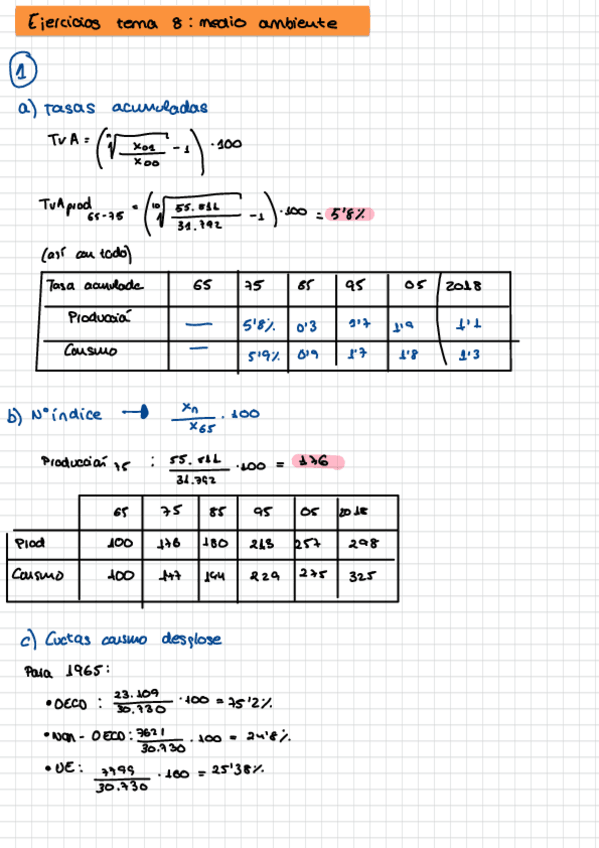 Ejercicios tema 8: medio ambiente
1
a) Tasas acumuladas
TVA = (ⁿ√(X01/X00) - 1) · 100
TVA prod 65-75 = (¹⁰√(55.811/31.792) - 1) · 100 = 5'8%
(así con todo)
Tasa acumulada 65 75 85 95 05 2018
Producción — 5'8% 0'3 1'7 1'9 1'1
Consumo — 5'9% 0'9 1'7 1'8 1'3
b) Nº índice → Xn/X65 · 100
Producción 75 : 55.811/31.792 · 100 = 176
65 75 85 95 05 2018
Prod 100 176 180 213 257 298
Consumo 100 177 194 229 275 325
c) Cuotas consumo desglose
Para 1965:
• OECD : 23.109/30.730 · 100 = 75'2%
• Non - OECD: 7621/30.730 · 100 = 24'8%.
• UE: 7799/30.730 · 100 = 25'38%.